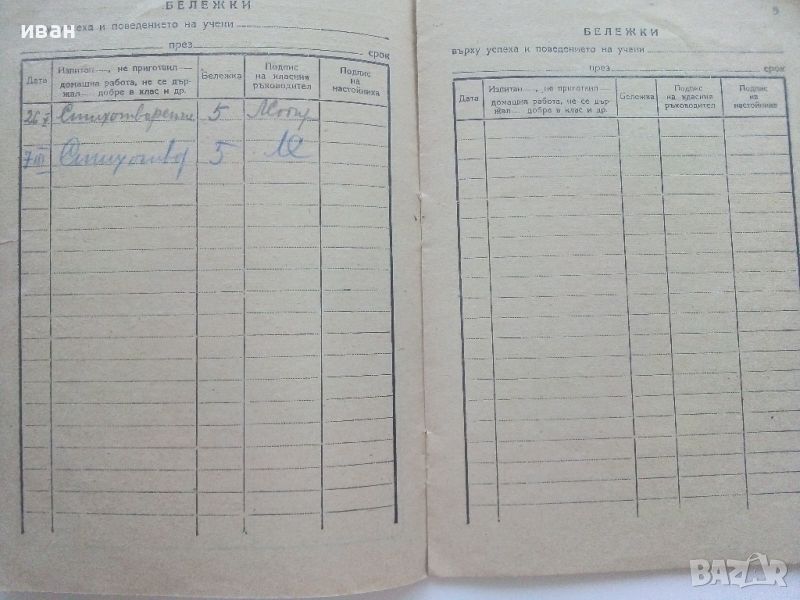 иван
БЕЛЕЖКИ
успеха и поведението на учени
през срок
Дата
Изпитан —, не приготвил —
домашна работа, не се дър-
жал — добре в клас и др.
Бележка
Подпис
на класния
ръководител
Подпис
на
настойника
26 X Стихотворение 5
7 III Стихотвор 5
5
БЕЛЕЖКИ
върху успеха и поведението на учени
през срок
Дата
Изпитан —, не приготвил —
домашна работа, не се дър-
жал — добре в клас и др.
Бележка
Подпис
на класния
ръководител
Подпис
на
настойника
BAZAR